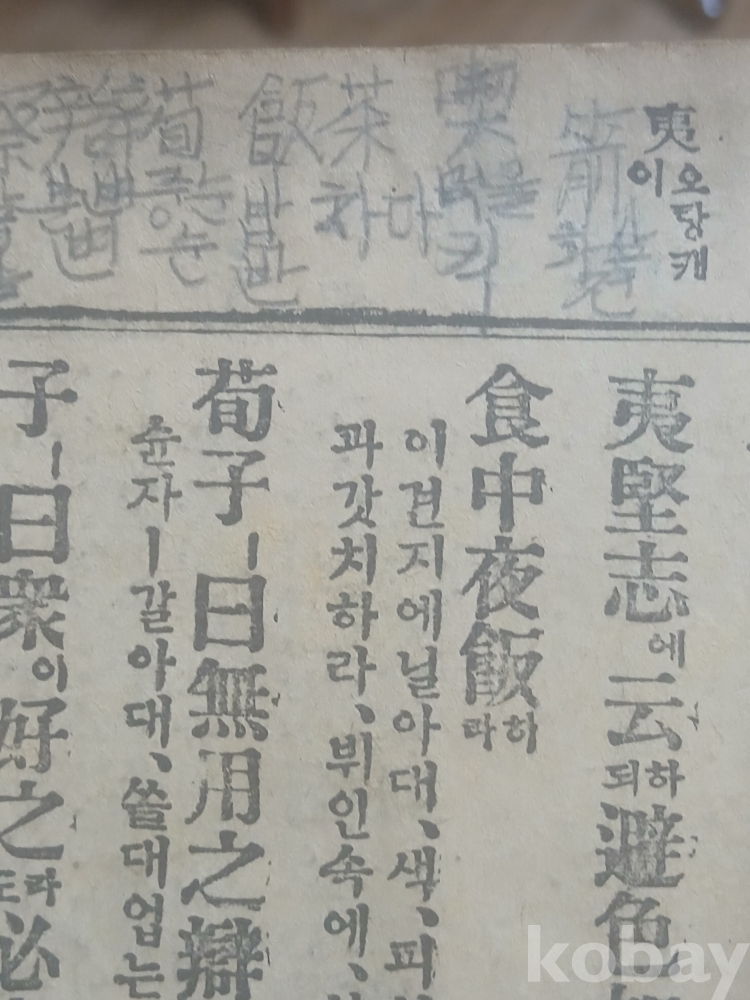 夷 오랑캐 이
喫 먹을 끽
茶 차 다
飯 밥 반
荀 죽순 순
夷堅志에云하되避色
食中夜飯하라
이견지에닐아대、색、피
과갓치하라、뷔인속에、
荀子ㅣ曰無用之辯
슌자ㅣ갈아대、쓸대업는
子ㅣ曰衆이好之라도必
kobay